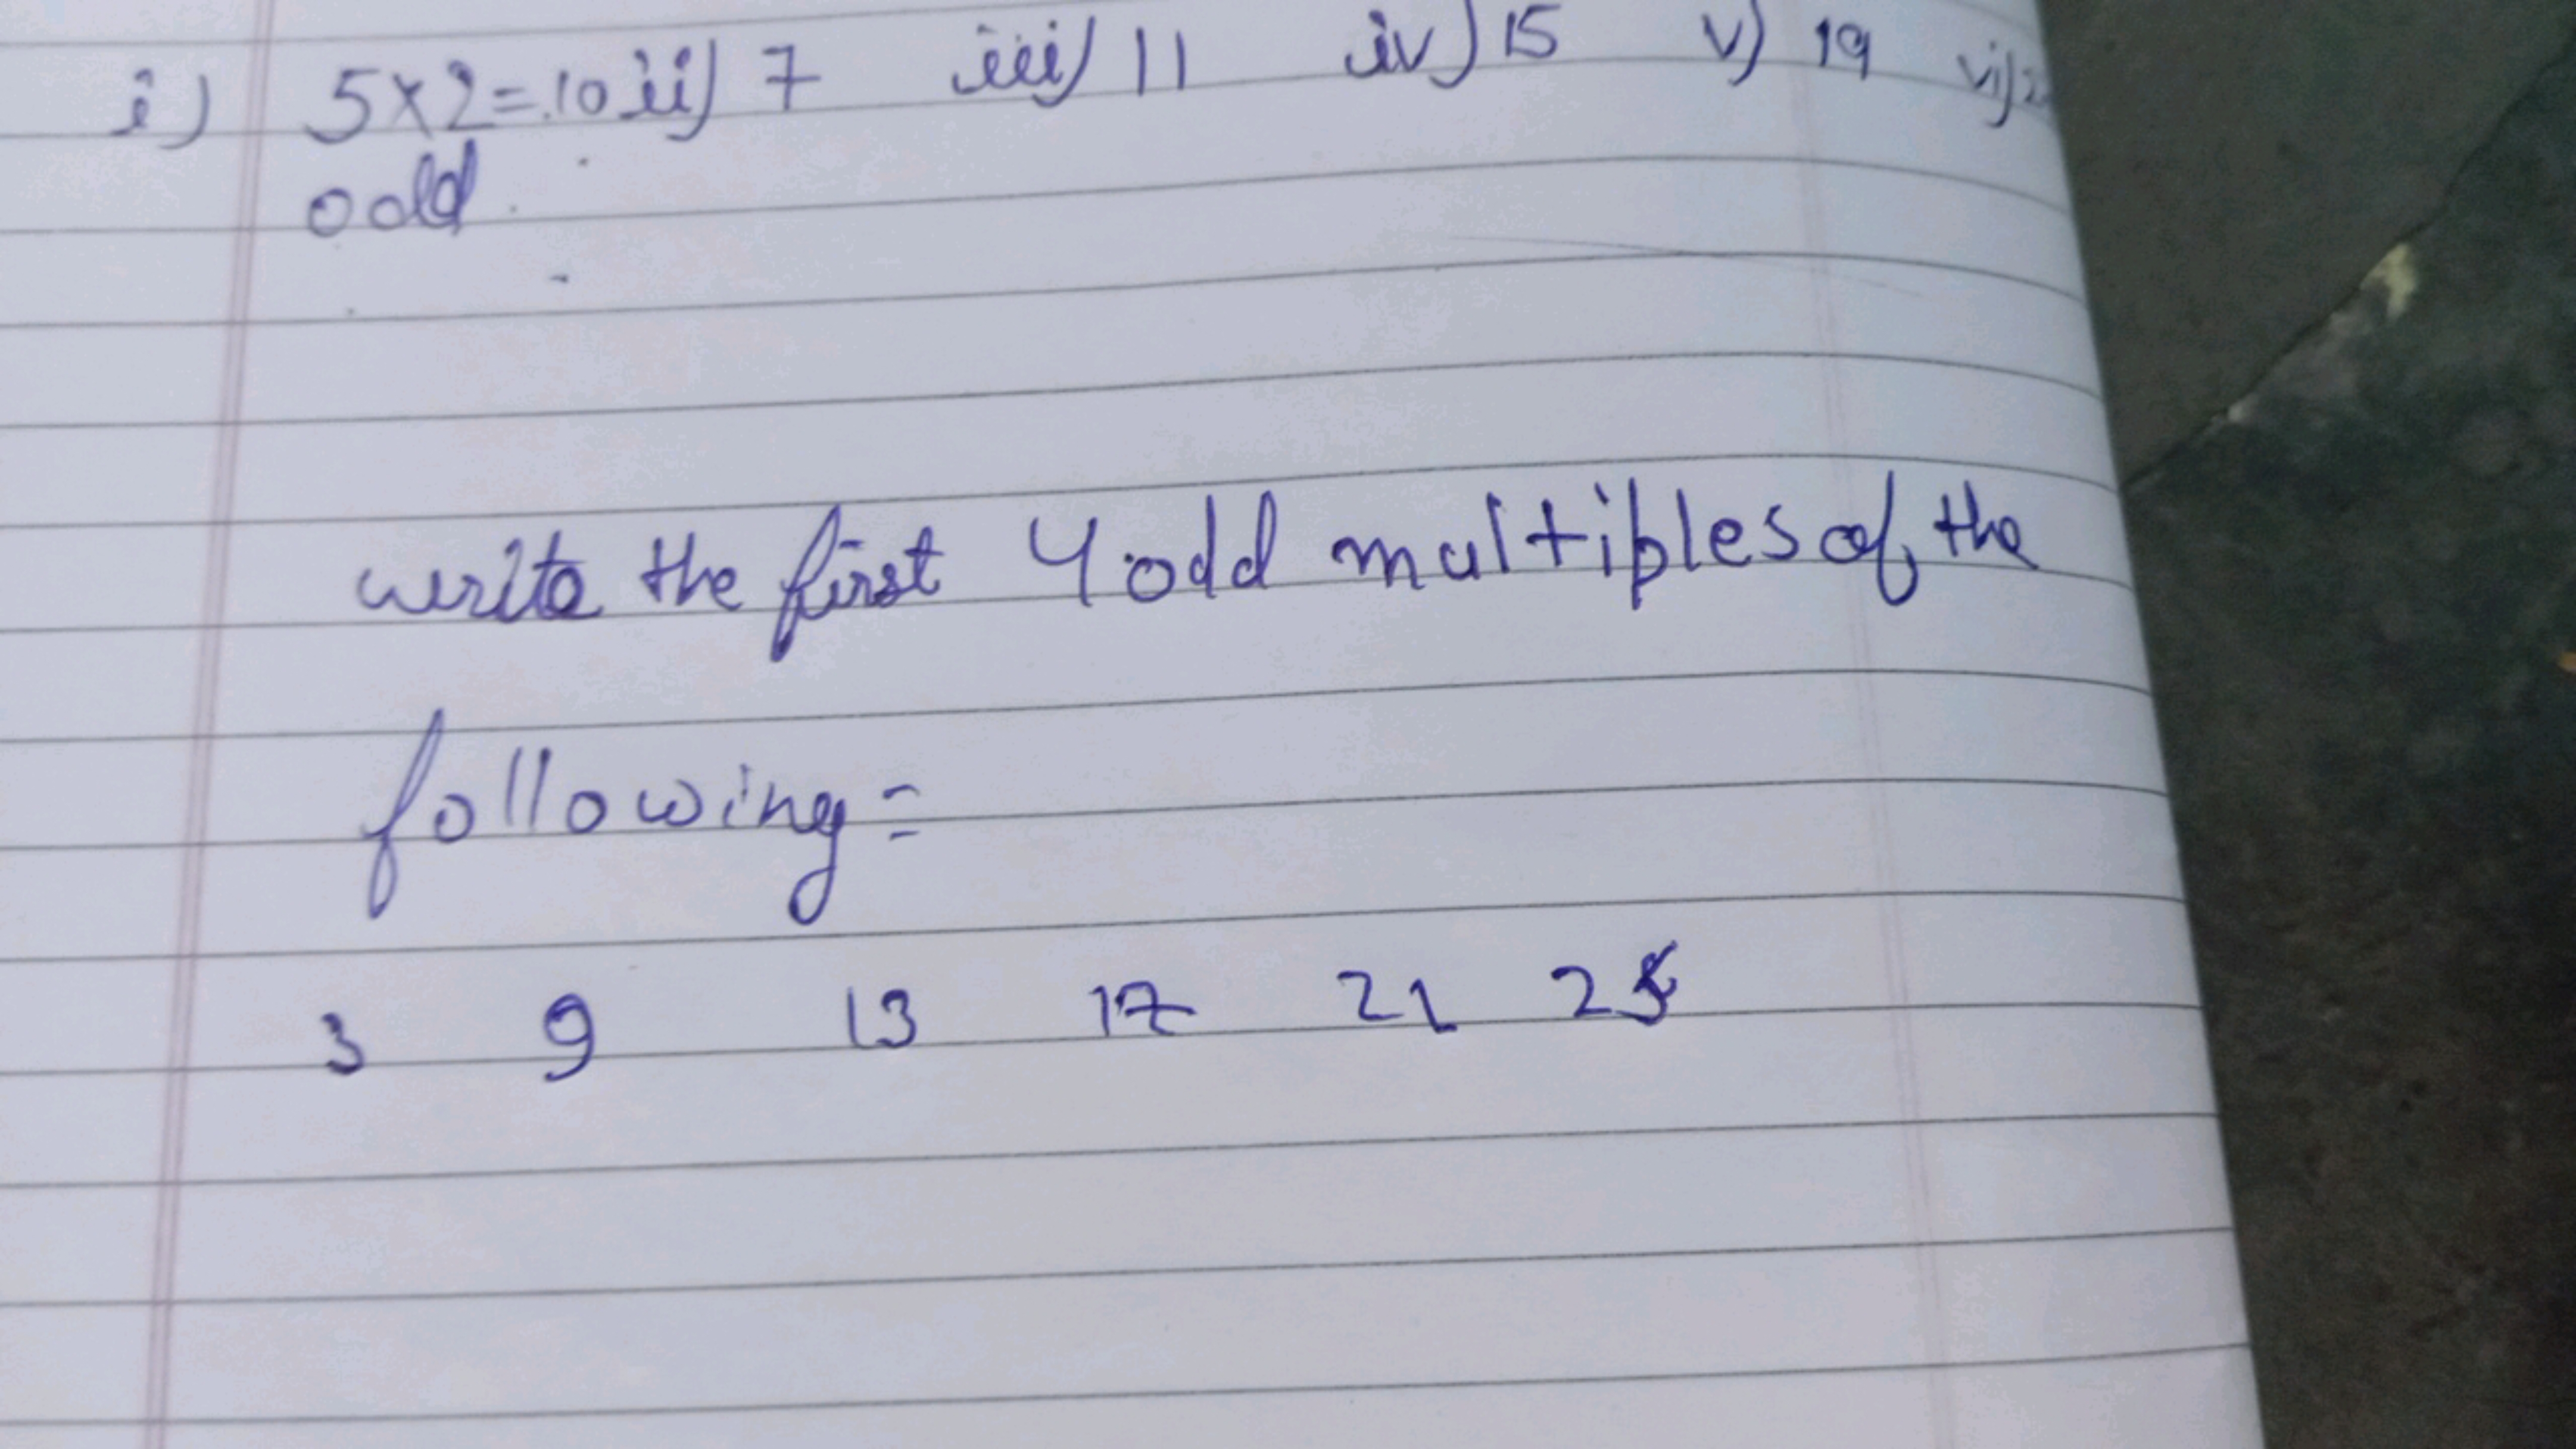 i) 5x2=10 ii) 7 iii) 11 iv) 15 v) 19 vi)
odd
write the first 4 odd multiples of the
following =
3 9 13 17 21 25